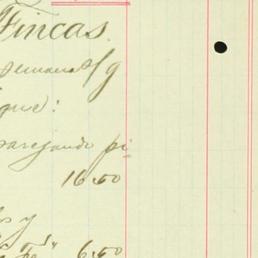 Fincas.
semana s/g
que:
parejando pi
16.50
y
6.50